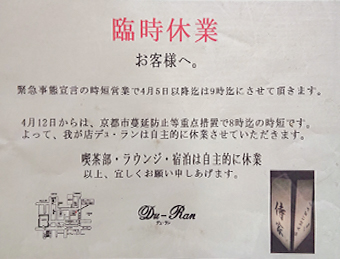 臨時休業
お客様へ。
緊急事態宣言の時短営業で4月5日以降迄は9時迄にさせて頂きます。
4月12日からは、京都市蔓延防止等重点措置で8時迄の時短です。
よって、我が店デュ・ランは自主的に休業させていただきます。
喫茶部・ラウンジ・宿泊は自主的に休業
以上、宜しくお願い申しあげます。
Du-Ran
デュ・ラン